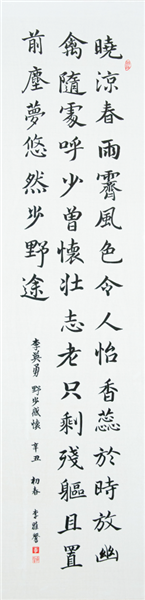 曉涼春雨霽風色令人怡香蕊於時放幽
禽隨處呼少曾懷壯志老只剩殘軀且置
前塵夢悠然步野途
李英勇 野步感懷 辛丑 初春 李